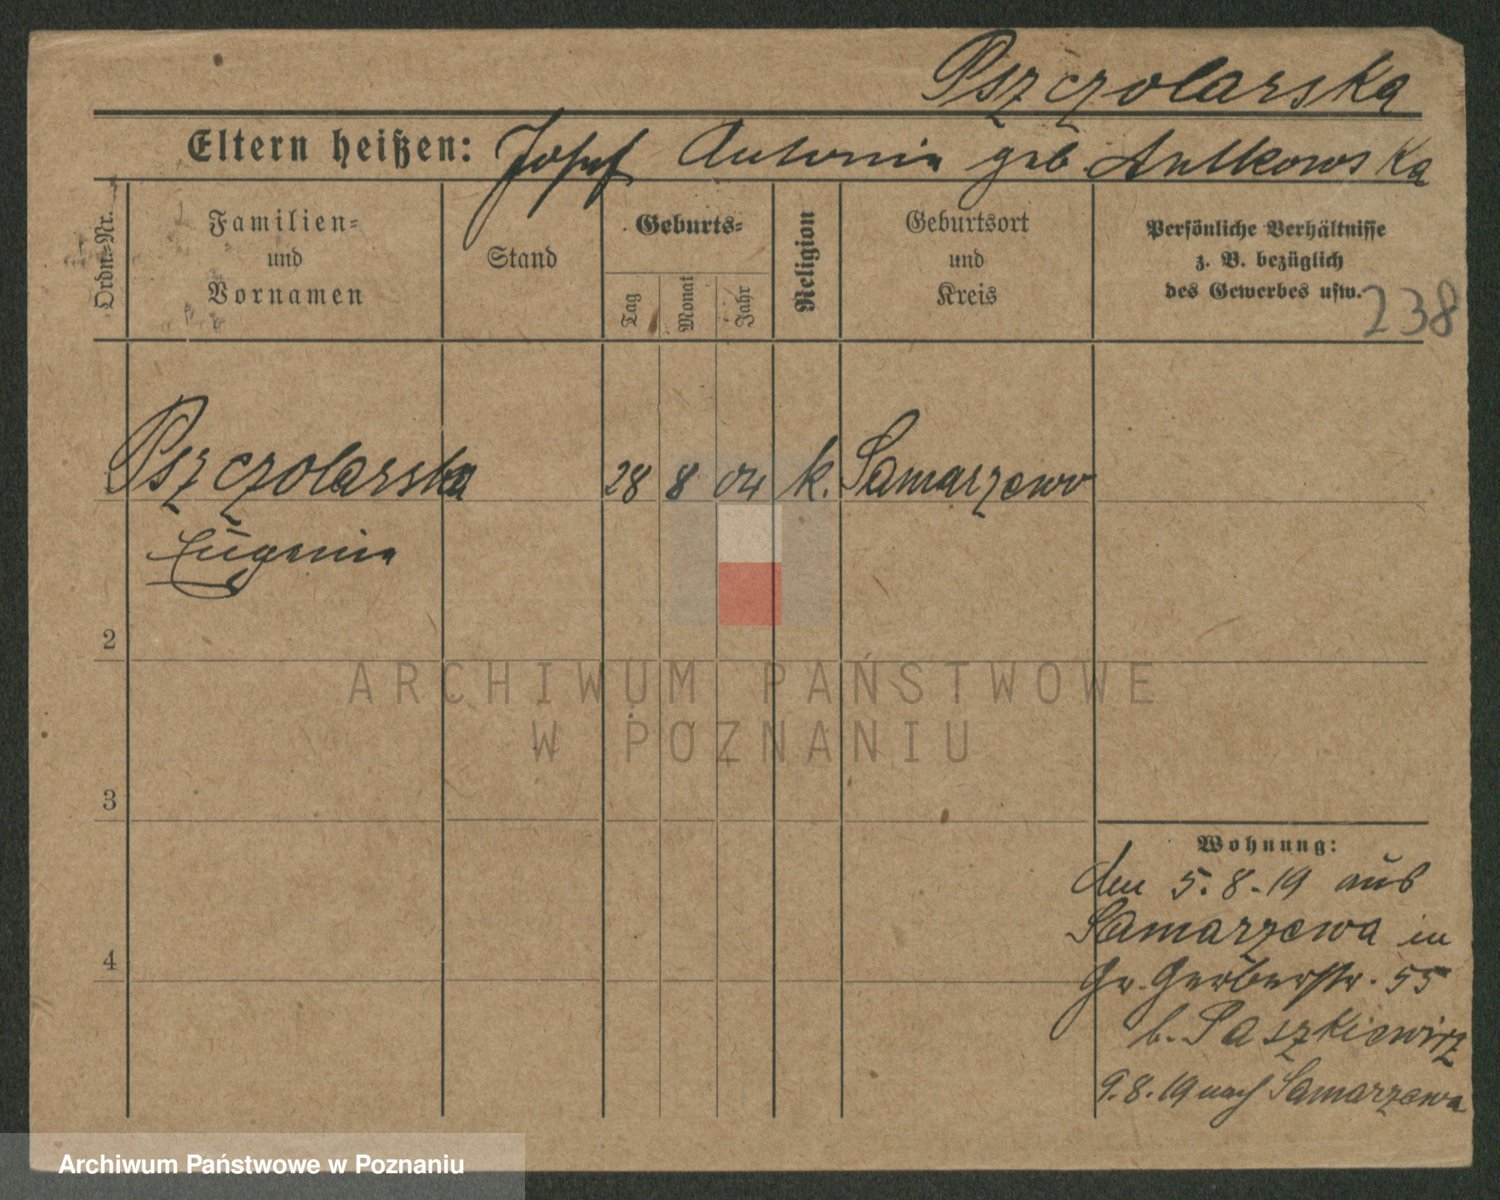 Pszczolarska
Eltern heißen: Josef Antonie geb. Antkowska
Ordn.-Nr.
Familien-
und
Vornamen
Stand
Geburts-
Tag
Monat
Jahr
Religion
Geburtsort
und
Kreis
Persönliche Verhältnisse
z. B. bezüglich
des Gewerbes usw.
238
Pszczolarska 28 8 04 k. Samarzewo
Eugenie
2
3
4
ARCHIWUM PAŃSTWOWE
W POZNANIU
Wohnung:
den 5.8.19 aus
Samarzewa in
Gr. Gerberstr. 55
b. Paszkiewicz
9.8.19 nach Samarzewa
Archiwum Państwowe w Poznaniu